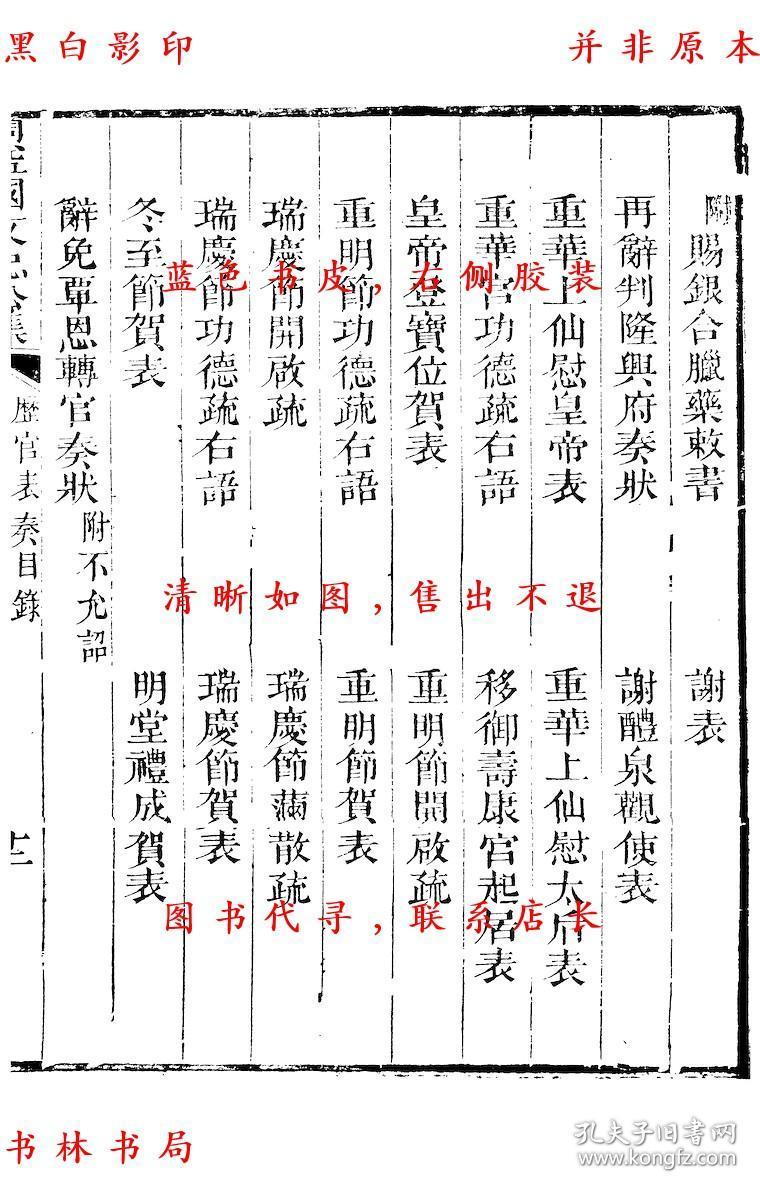 黑白影印
并非原本
附賜銀合臘藥敕書
謝表
再辭判隆興府奏狀
謝醴泉觀使表
重華上仙慰皇帝表
重華上仙慰太后表
重華宫功德疏右語
移御壽康宫起居表
皇帝登寶位賀表
重明節開啟疏
重明節功德疏右語
重明節賀表
瑞慶節開啟疏
瑞慶節滿散疏
瑞慶節功德疏右語
瑞慶節賀表
冬至節賀表
明堂禮成賀表
辭免覃恩轉官奏狀
附不允詔
國文忠公集
歷官表奏目錄
十二
蓝色书皮,右侧胶装
清晰如图,售出不退
图书代寻,联系店长
书林书局
孔夫子旧书网
www.kongfz.com